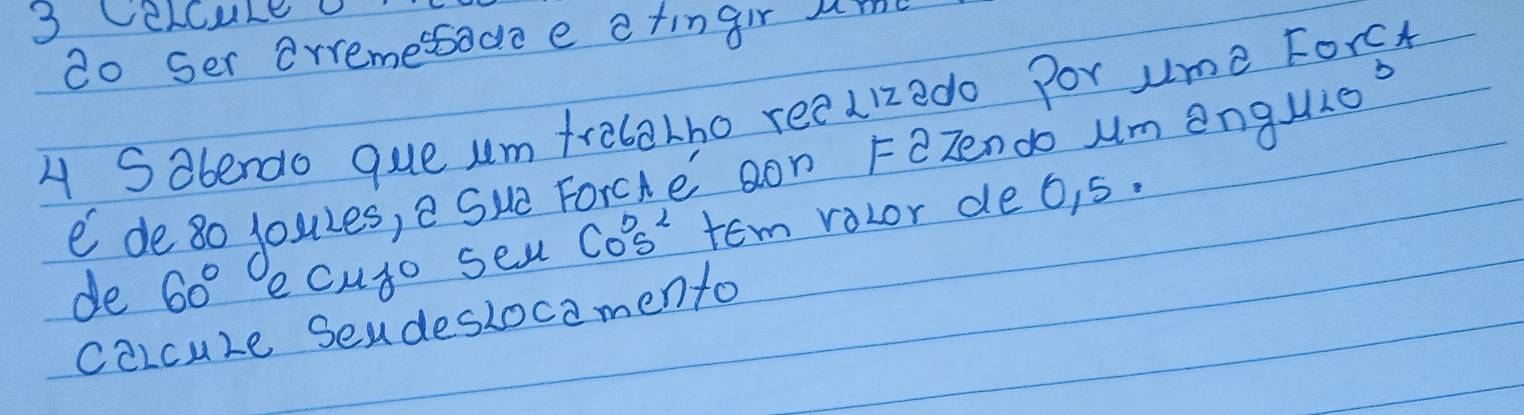 3 Calcule o
ao ser arremessada e atingir uma
4 Sabendo que um trabalho realizado Por uma Forca
é de 80 joules, a sua Forca é 20n Fazendo um angulo
de 60° e cujo seu Cos tem valor de 0,5.
calcule seu deslocamento